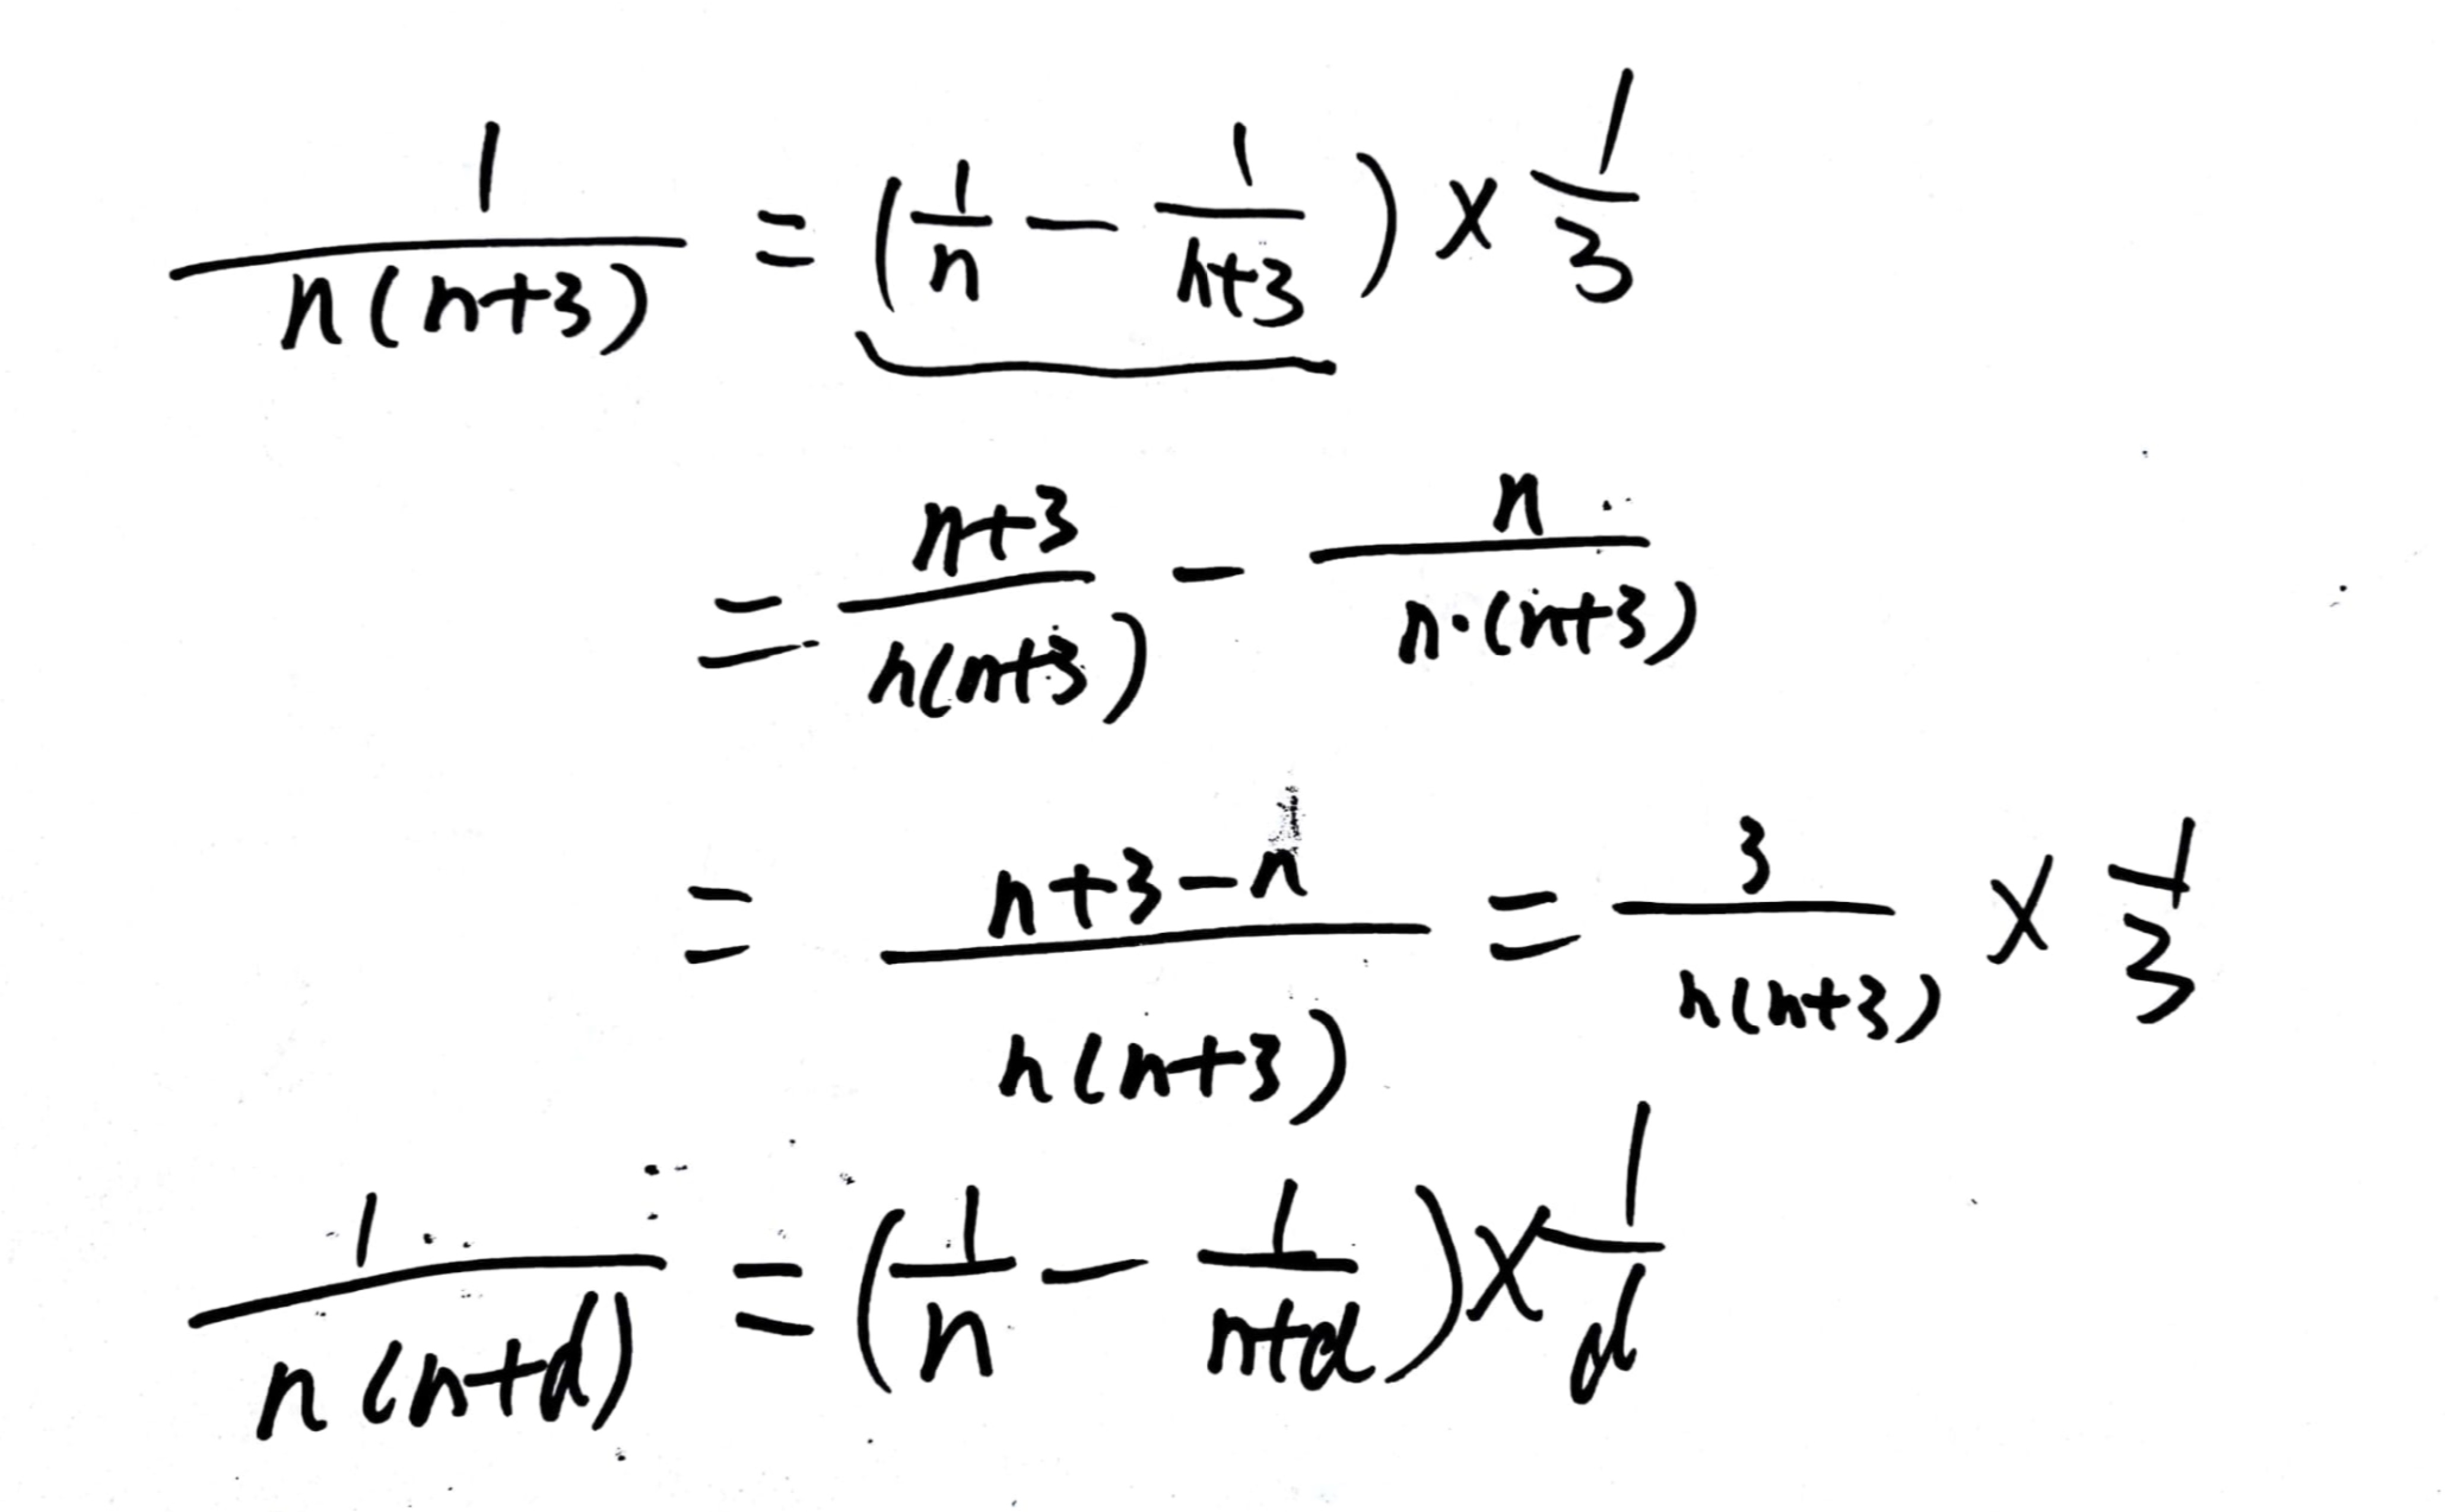 1/(n(n+3)) = (1/n - 1/(n+3)) × 1/3
= (n+3)/(n(n+3)) - n/(n·(n+3))
= (n+3-n)/(n(n+3)) = 3/(n(n+3)) × 1/3
1/(n(n+d)) = (1/n - 1/(n+d)) × 1/d